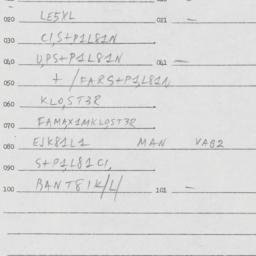 020 LE5XL 021 —
030 CI,S+P1L81N
040 U,PS+P1L81N 041 —
050 + /FARS+P1,L81N
060 KLO,ST3R
070 FAMAX1MKLO,ST3R
080 EJK81L1 MAN VAG2
090 S+P1,L81CI,
100 BANT81K/L/ 101 —